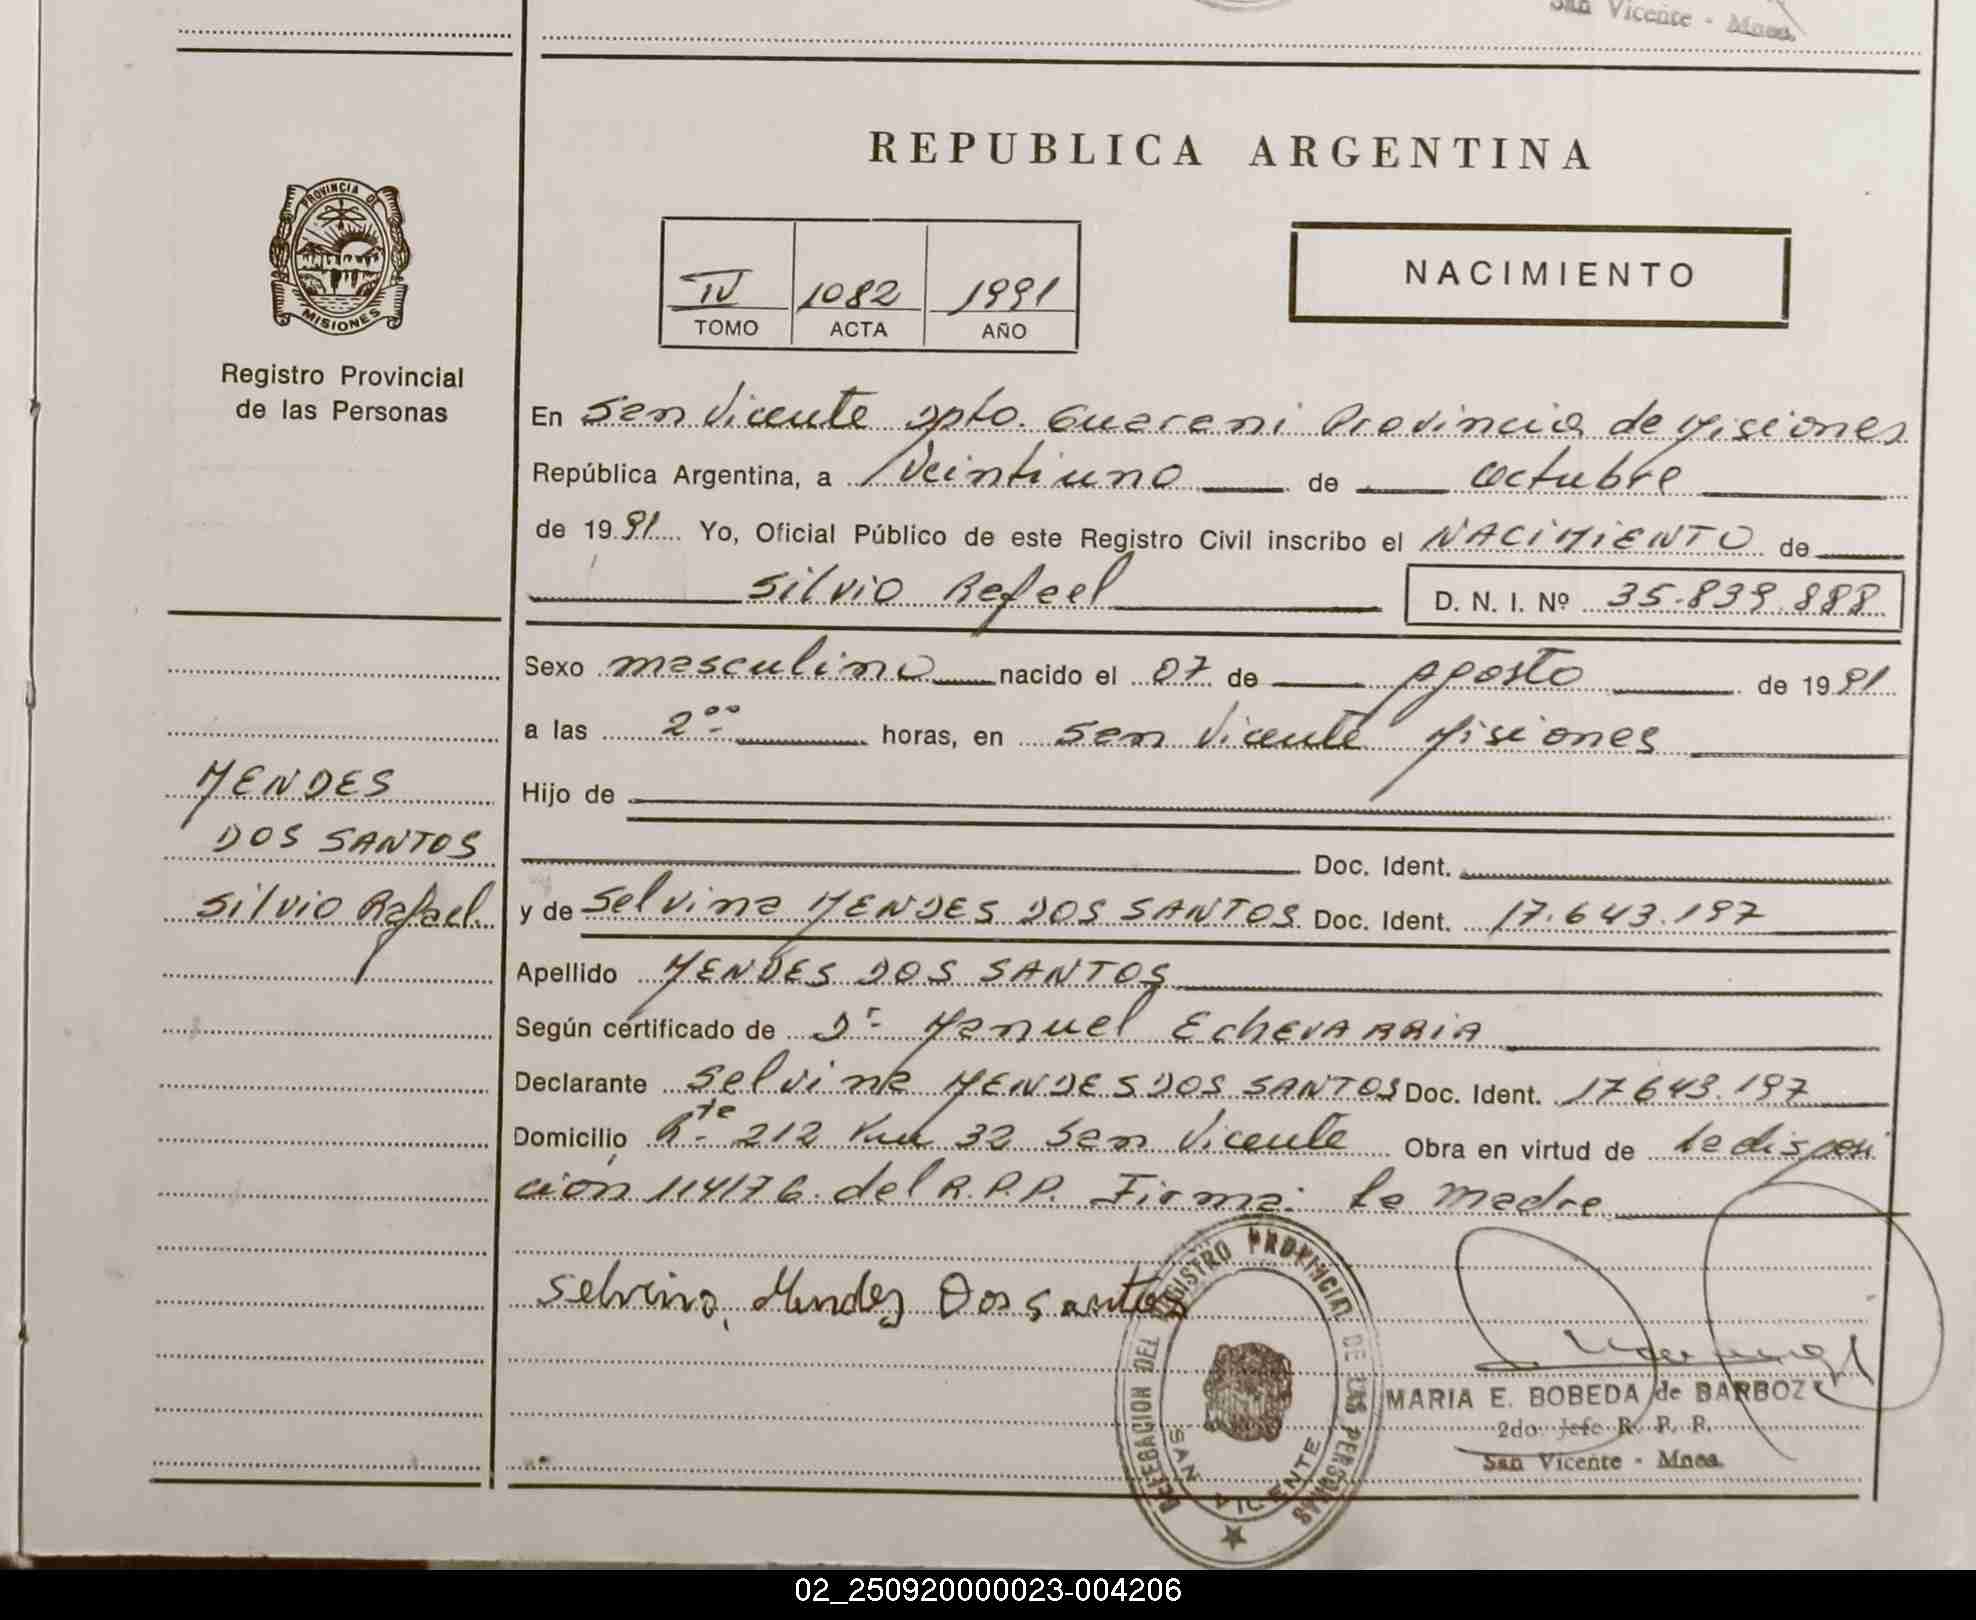 San Vicente - Mnes.
REPUBLICA ARGENTINA
PROVINCIA DE
MISIONES
Registro Provincial
de las Personas
IV 1082 1991
TOMO ACTA AÑO
NACIMIENTO
En San Vicente Dpto. Guarani Provincia de Misiones
República Argentina, a Veintiuno de octubre
de 1991 Yo, Oficial Público de este Registro Civil inscribo el NACIMIENTO de
Silvio Rafael D. N. I. Nº 35.839.888
Sexo masculino nacido el 07 de agosto de 1991
a las 2°° horas, en San Vicente Misiones
Hijo de
Doc. Ident.
y de Selvina MENDES DOS SANTOS Doc. Ident. 17.643.197
Apellido MENDES DOS SANTOS
Según certificado de Dr. Manuel EchEVARRIA
Declarante Selvina MENDES DOS SANTOS Doc. Ident. 17643.197
Domicilio Rte. 212 Km 32 San Vicente Obra en virtud de la disposi
ción 114176. del R.P.P. Firma: la madre
MENDES
DOS SANTOS
Silvio Rafael.
Selvina, Mendez Dos santos
DELEGACION DEL REGISTRO PROVINCIAL DE LAS PERSONAS
SAN VICENTE
MARIA E. BOBEDA de BARBOZA
2do. Jefe R. P. P.
San Vicente - Mnes.
02_250920000023-004206